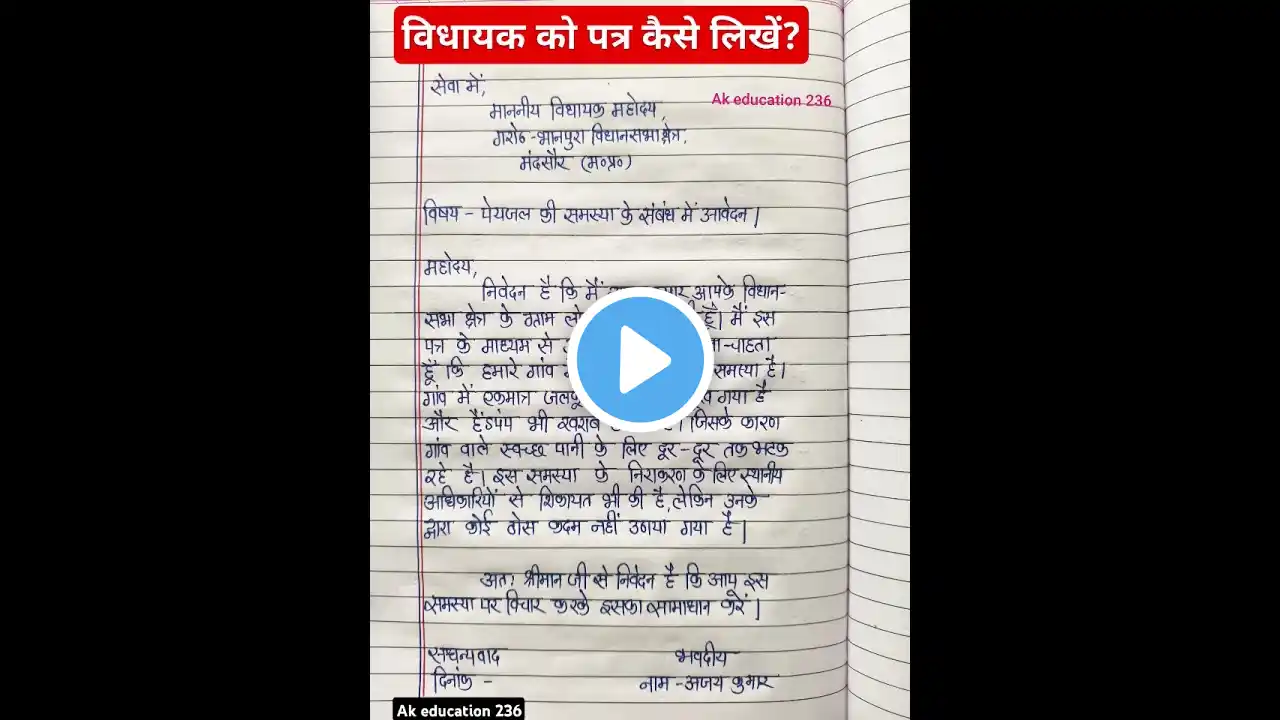 विधायक को पत्र कैसे लिखें?
सेवा में,
Ak education 236
माननीय विधायक महोदय,
गरोठ-भानपुरा विधानसभा क्षेत्र,
मंदसौर (म०प्र०)
विषय - पेयजल की समस्या के संबंध में आवेदन |
महोदय,
निवेदन है कि मैं आपके विधान-
सभा क्षेत्र के ग्राम हूँ| मैं इस
पत्र के माध्यम से चाहता
हूँ कि हमारे गांव समस्या है|
गांव में एकमात्र गया है
और हैंडपंप भी खराब | जिसके कारण
गांव वाले स्वच्छ पानी के लिए दूर-दूर तक भटक
रहे है| इस समस्या के निराकरण के लिए स्थानीय
अधिकारियों से शिकायत भी की है, लेकिन उनके
द्वारा कोई ठोस कदम नहीं उठाया गया है|
अतः श्रीमान जी से निवेदन है कि आप इस
समस्या पर विचार करके इसका सामाधान करें|
सधन्यवाद भवदीय
दिनांक - नाम - अजय कुमार
Ak education 236